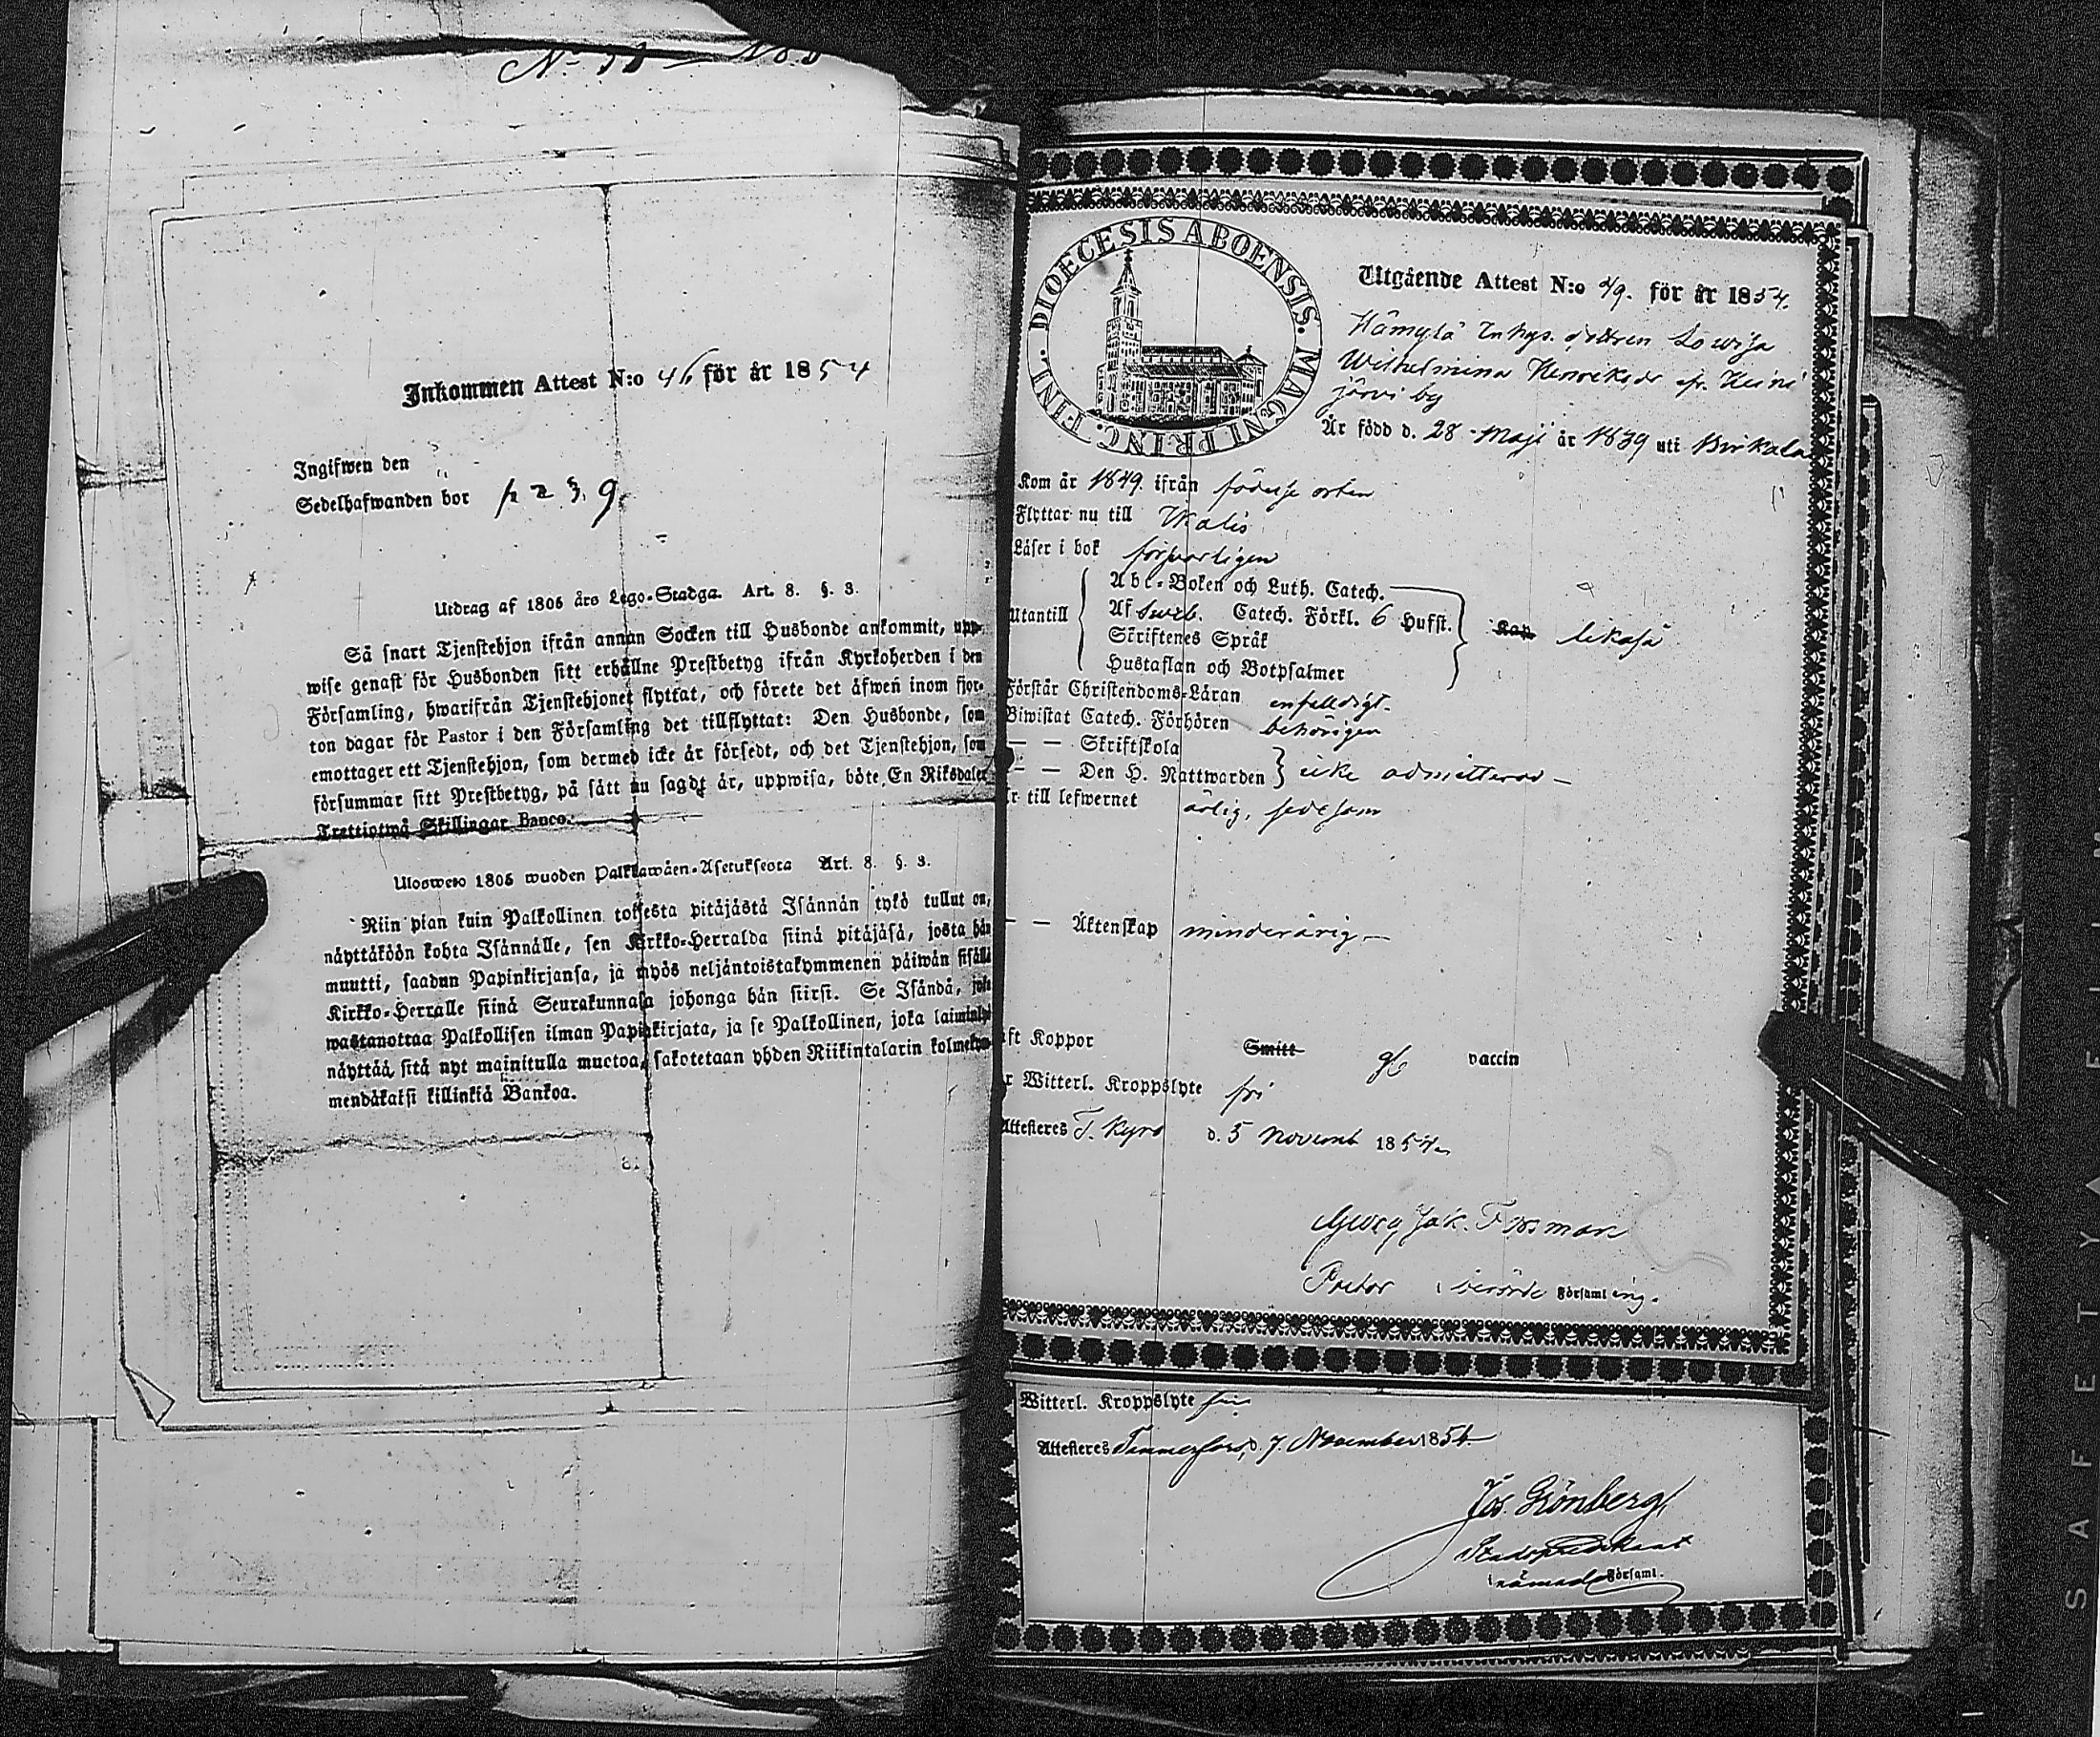 Inkommen Attest N:o 46 för år 1854
Ingifwen den
Sedelhafwanden bor
Utdrag af 1805 års Lego-Stadga. Art. 8. §. 3.
Så snart Tjenstehjon ifrån annan Socken till Husbonde ankommit, upp-
wise genast för Husbonden sitt erhållne Prestbetyg ifrån Kyrkoherden i den
Församling, hwarifrån Tjenstehjonet flyttat, och förete det äfwen inom fjor-
ton dagar för Pastor i den Församling det tillflyttat: Den Husbonde, som
emottager ett Tjenstehjon, som dermed icke är försedt, och det Tjenstehjon, som
försummar sitt Prestbetyg, på sätt nu sagdt är, uppwisa, böte En Riksdaler
Trettiotwå Skillingar Banco.
Uloswero 1805 wuoden Palkkawäen-Asetuksesta Art. 8. §. 3.
Niin pian kuin Palkollinen toisesta pitäjästä Isännän tykö tullut on,
näyttäköön kohta Isännälle, sen Kirkko-Herralda siinä pitäjäsä, josta hän
muutti, saadun Papinkirjansa, ja myös neljäntoistakymmenen päiwän sisällä
Kirkko-Herralle siinä Seurakunnasa johonga hän siirsi. Se Isändä, joka
wastanottaa Palkollisen ilman Papinkirjata, ja se Palkollinen, joka laiminlyö
näyttää sitä nyt mainitulla muotoa, sakotetaan yhden Riikintalarin kolmekym-
mendäkaksi killinkiä Bankoa.
DIOECESIS ABOENSIS. MAGNI PRINC. FINL.
Utgående Attest N:o 49. för år 1854.
Hämylä Inhys. dottren Lowisa
Wilhelmina Henriksdr fr. Heini
järvi by
Är född d. 28 Maji år 1839 uti Birkala
Kom år 1849. ifrån födelse orten
Flyttar nu till Ikalis
Läser i bok försvarligen
Utantill
Abc-Boken och Luth. Catech.
Af Sweb. Catech. Förkl. 6 Hufst.
Skriftenes Språk
Hustaflan och Botpsalmer
Kan likaså
Förstår Christendoms-Läran enfaldigt.
Biwistat Catech. Förhören behörigen
— — Skriftskola
— — Den H. Nattwarden } icke admitterad —
Är till lefwernet ärlig, sedesam
— — Äktenskap minderårig —
Haft Koppor Smitt g/c vaccin
Är Witterl. Kroppslyte fri
Attesteres T. Kyro d. 5 Novemb 1854
Georg Jak. Forsman
Pastor i berörde Församling.
Witterl. Kroppslyte fri
Attesteres Tammerfors, d. 7 November 1854.
Jos. Grönberg
Stadspredikant
i nämnde Församl.
SAFETY FILM